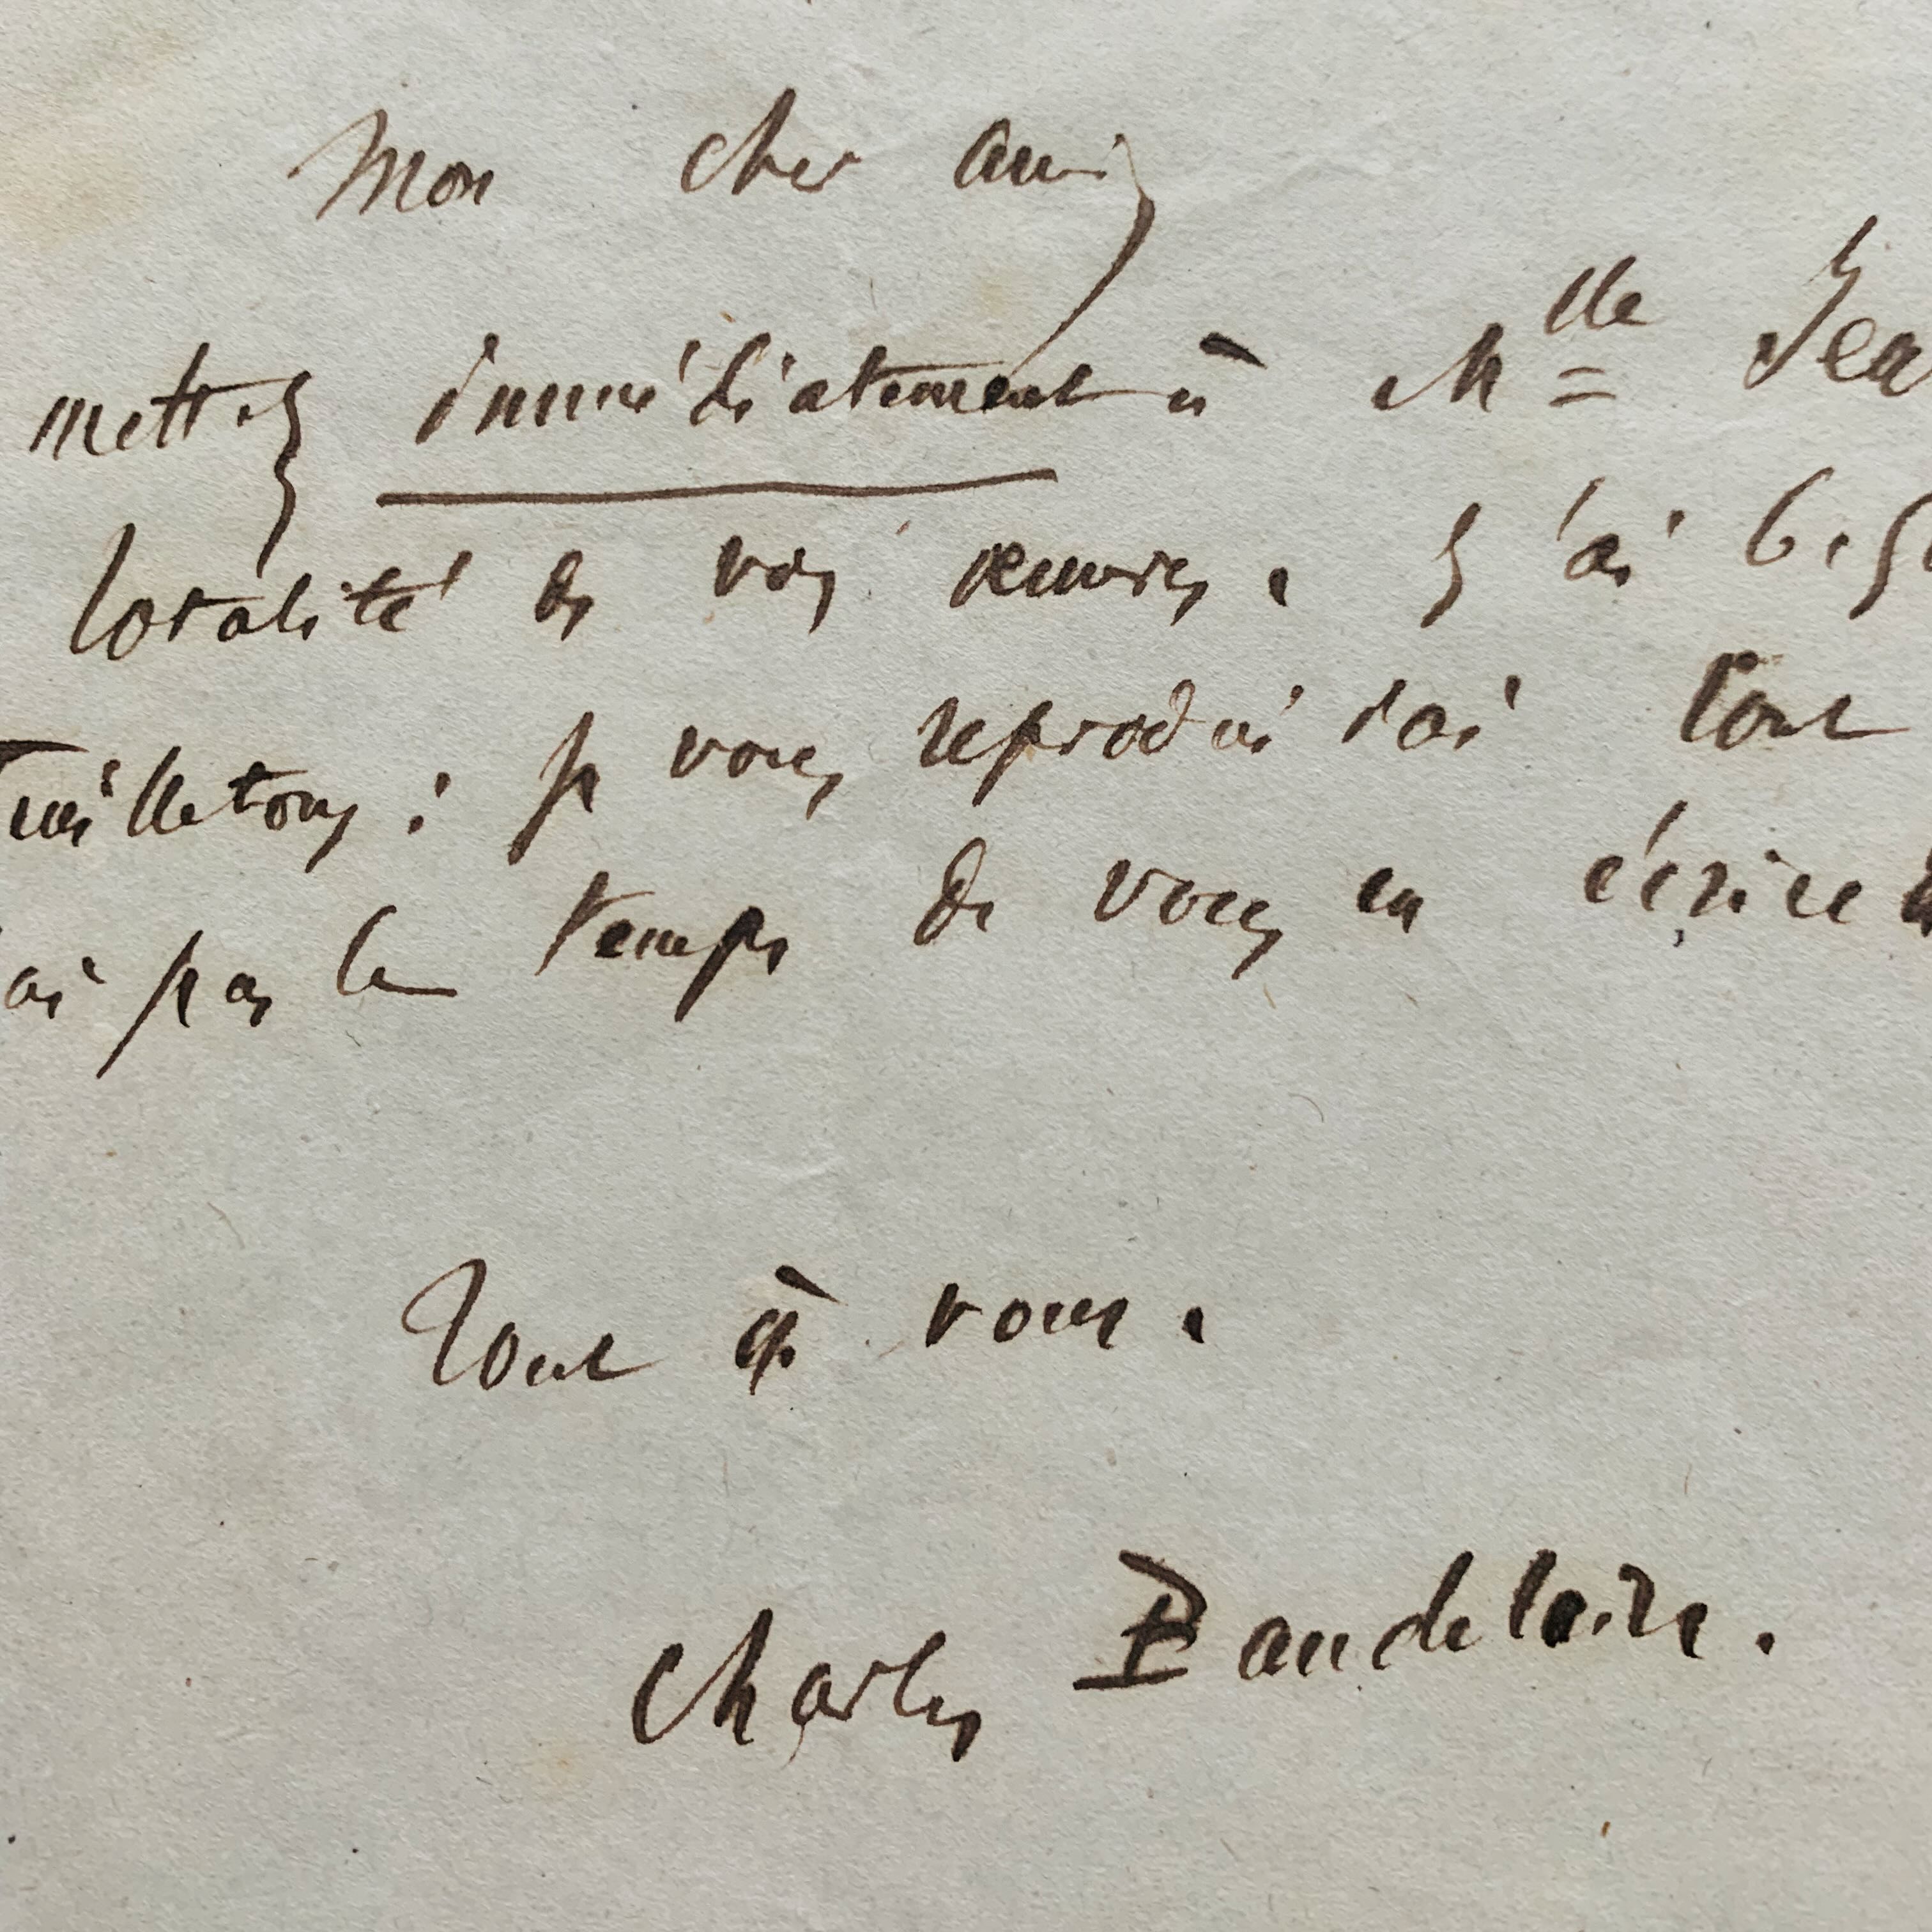 Mon cher ami,
mettez immédiatement à Mlle Jea
totalité de vos œuvres. J'ai bes
uilletons : je vous reproduirai tout
ai pas le temps de vous en écrire
Tout à vous.
Charles Baudelaire.